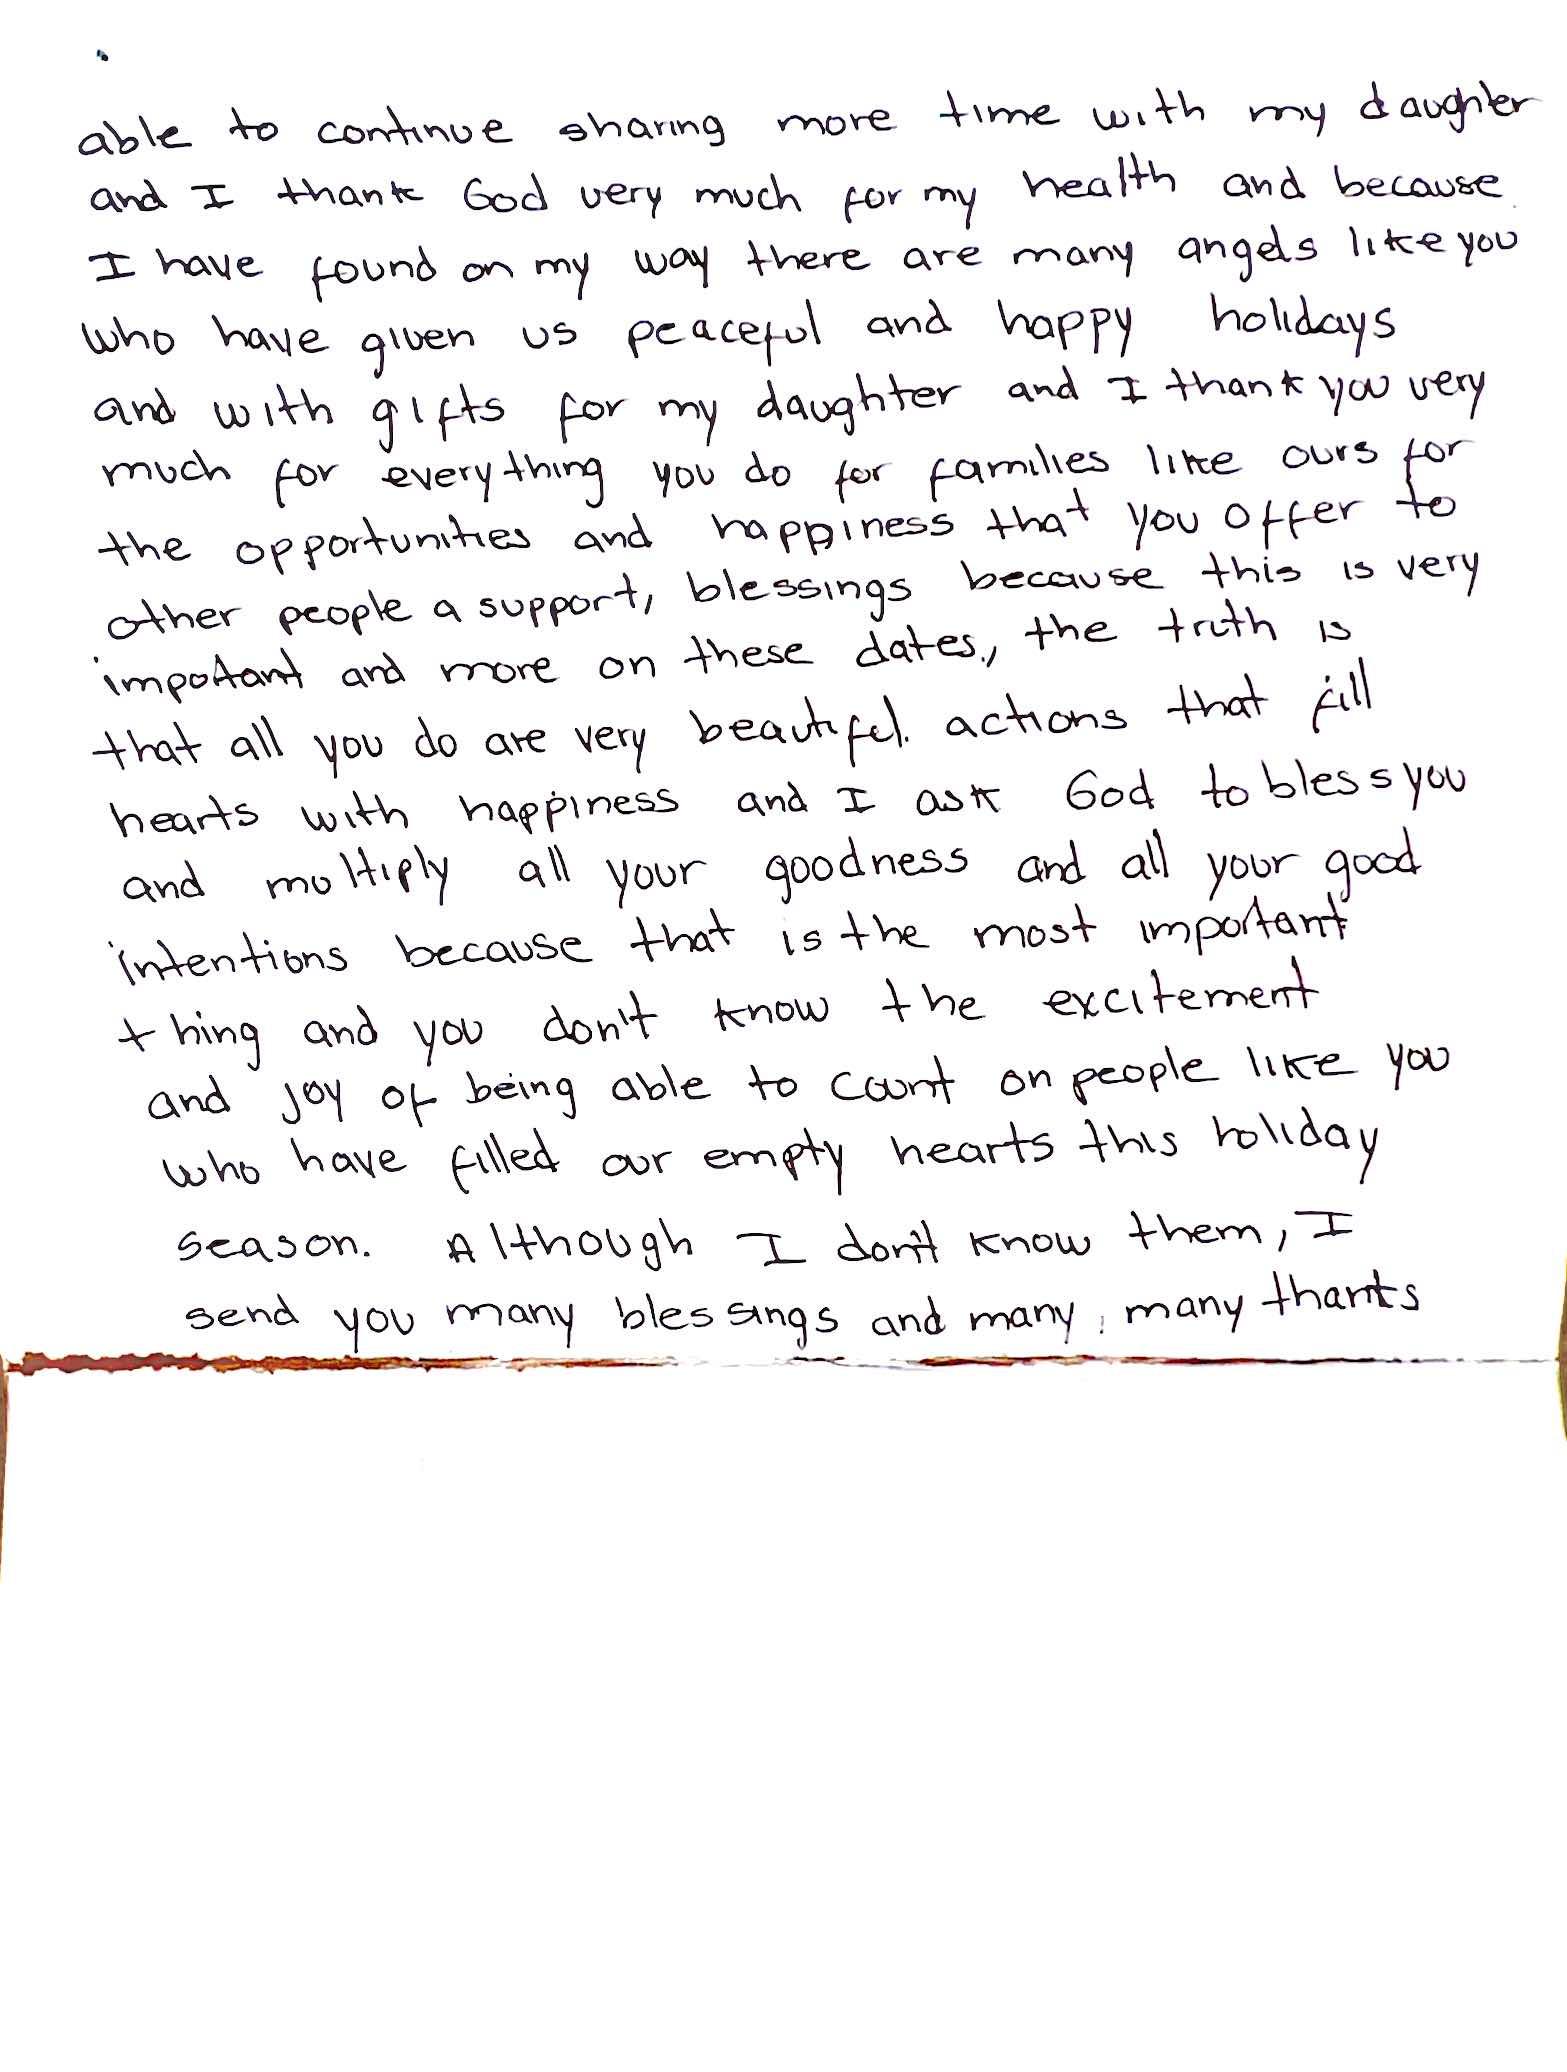 able to continue sharing more time with my daughter
and I thank God very much for my health and because
I have found on my way there are many angels like you
who have given us peaceful and happy holidays
and with gifts for my daughter and I thank you very
much for everything you do for families like ours for
the opportunities and happiness that you offer to
other people a support, blessings because this is very
important and more on these dates., the truth is
that all you do are very beautiful. actions that fill
hearts with happiness and I ask God to bless you
and multiply all your goodness and all your good
intentions because that is the most important
thing and you don't know the excitement
and joy of being able to count on people like you
who have filled our empty hearts this holiday
season. Although I don't know them, I
send you many blessings and many, many thanks